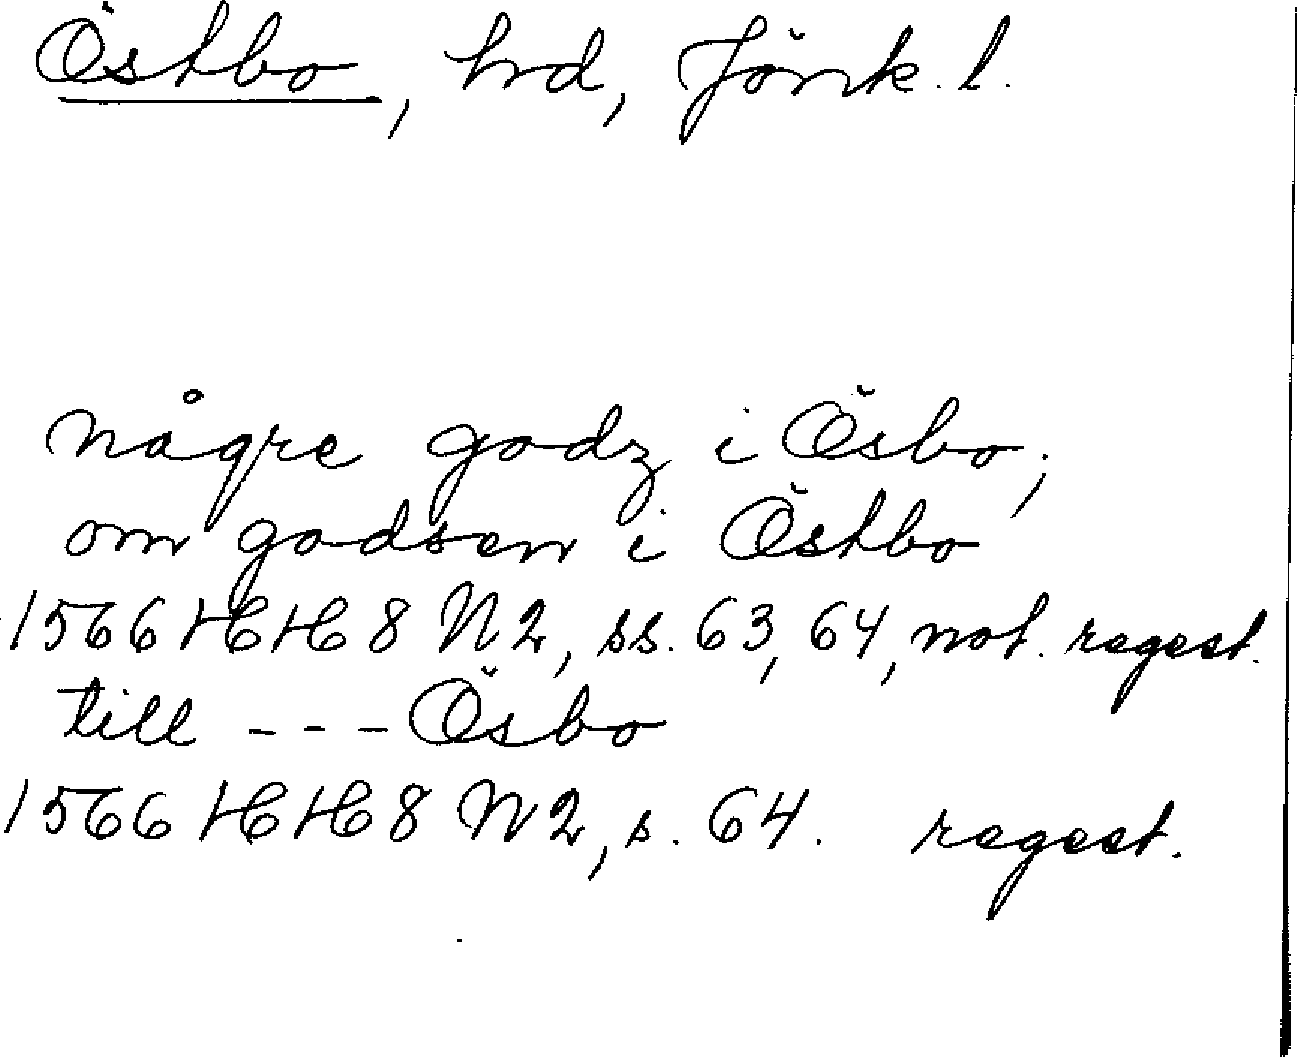 Östbo, hrd, Jönk. l.
någre godz i Ösbo;
om godsen i Östbo
1566 HH 8 N 2, ss. 63, 64, not. regest.
till --- Ösbo
1566 HH 8 N 2, s. 64. regest.